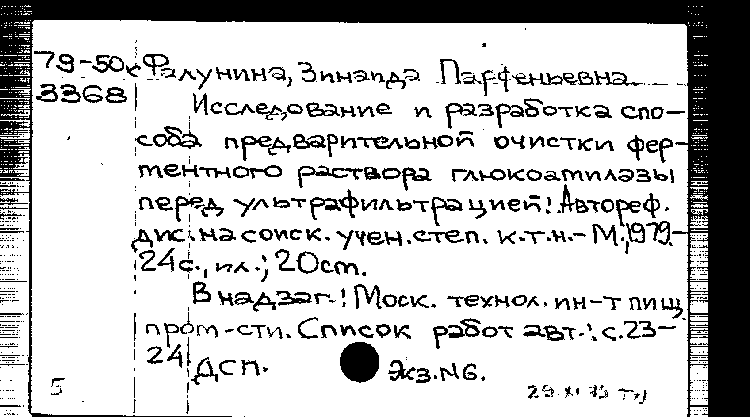 79-50к Фалунина, Зинаида Парфеньевна
3368
Исследование и разработка спо-
соба предварительной очистки фер-
ментного раствора глюкоамилазы
перед ультрафильтрацией: Автореф.
дис. на соиск. учен. степ. к.т.н. - М., 1979. -
24с., ил.; 20см.
В надзаг.: Моск. технол. ин-т пищ.
пром-сти. Список работ авт.: с.23-
24
ДСП. Экз. N6.
5 29 XI 79